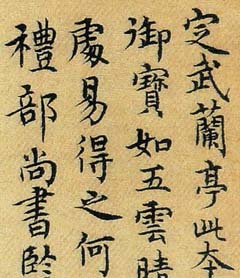 定武蘭亭此本
御寶如五雲晴
處易得之何
禮部尚書